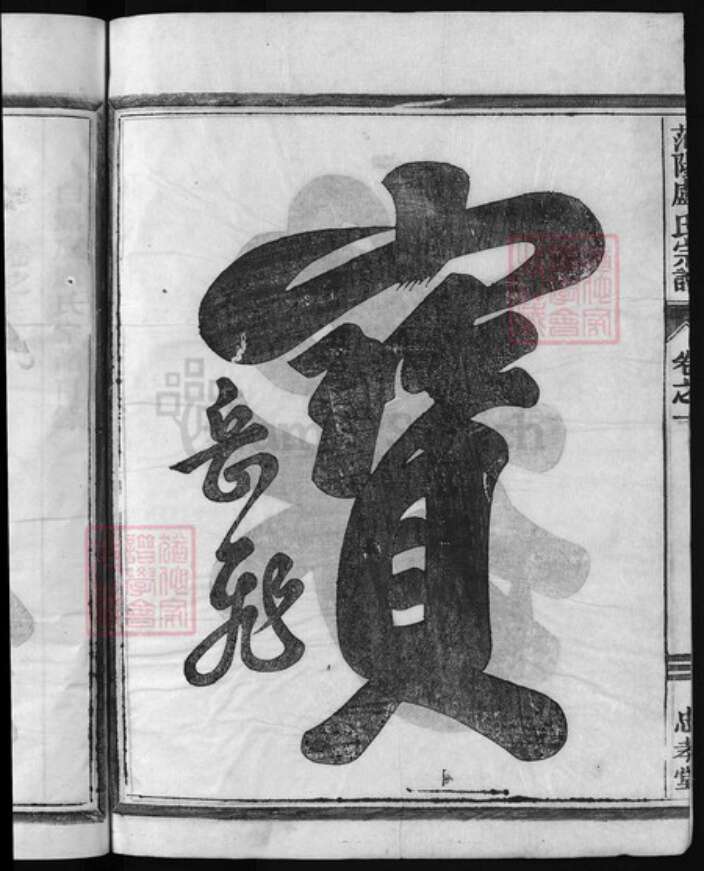 范陽盧氏宗譜
卷之一
忠孝堂
寳
岳飛